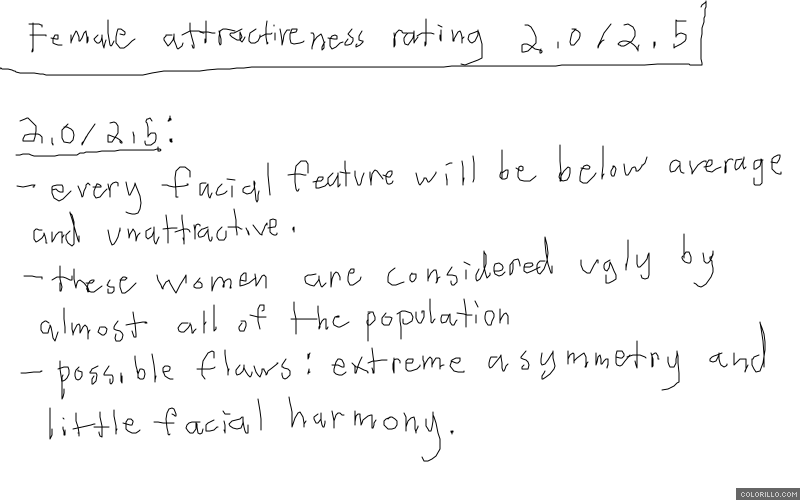 Female attractiveness rating 2.0/2.5
2.0/2.5:
- every facial feature will be below average
and unattractive.
- these women are considered ugly by
almost all of the population
- possible flaws: extreme asymmetry and
little facial harmony.
COLORILLO.COM